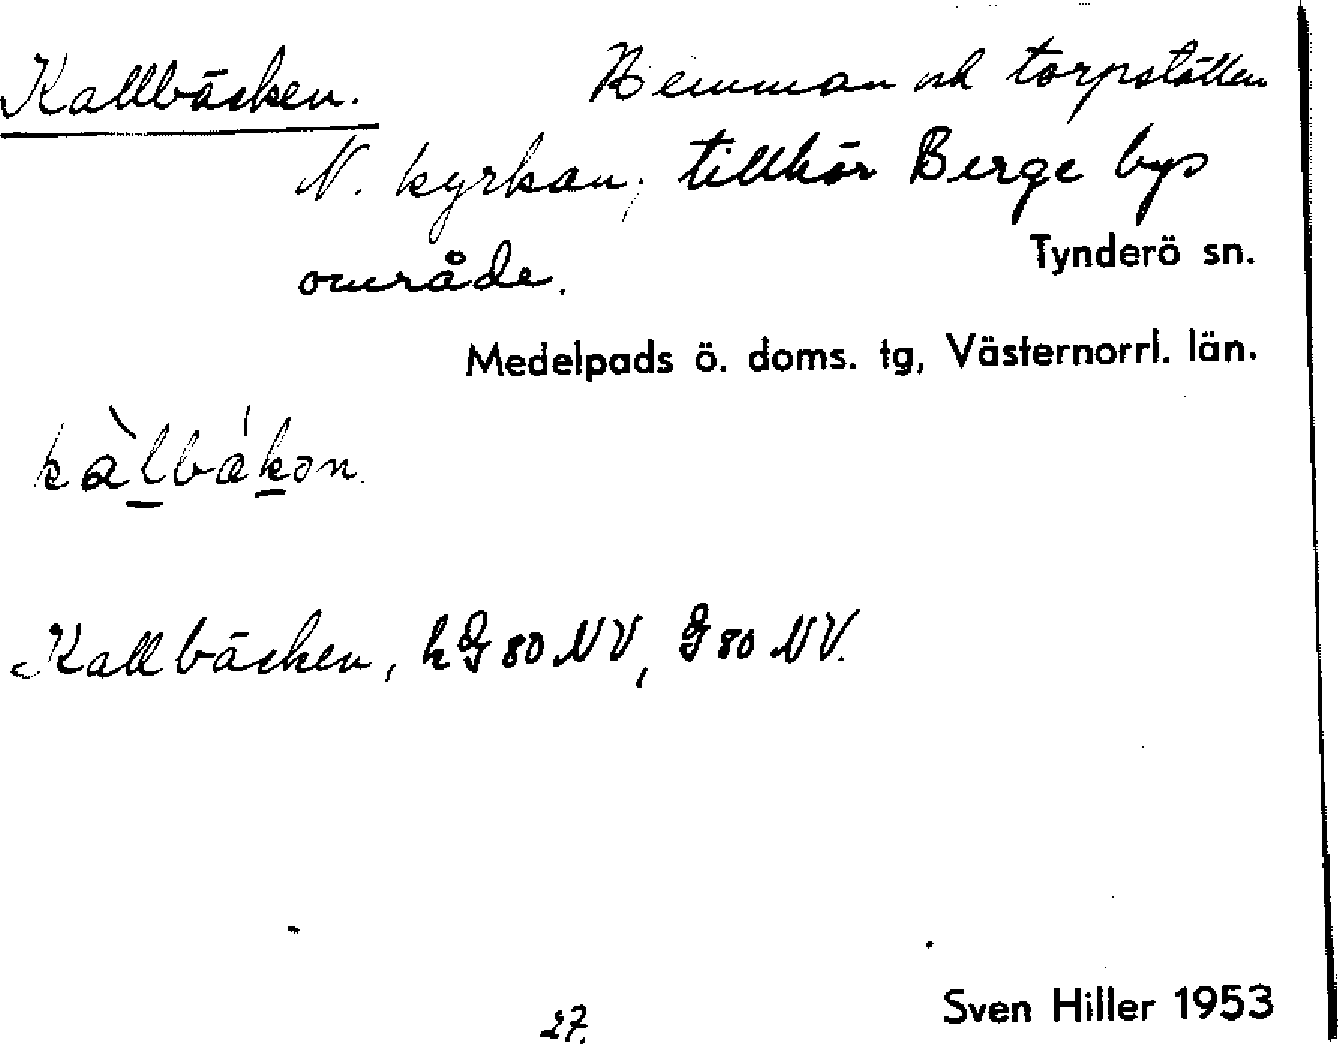 Kallbäcken. Hemman och torpställen
N. kyrkan; tillhör Berge bys
område.
Tynderö sn.
Medelpads ö. doms. tg, Västernorrl. län.
Kallbäcken, hG 80 NV, G 80 NV.
27.
Sven Hiller 1953